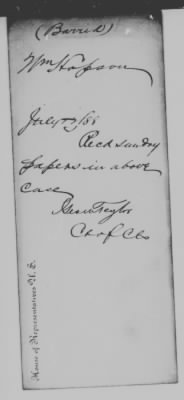 (Barred)
Wm Hopson
July 17/88
Recd sundry
papers in above
case
Geo Taylor
Ch of Cls
House of Representatives U. S.